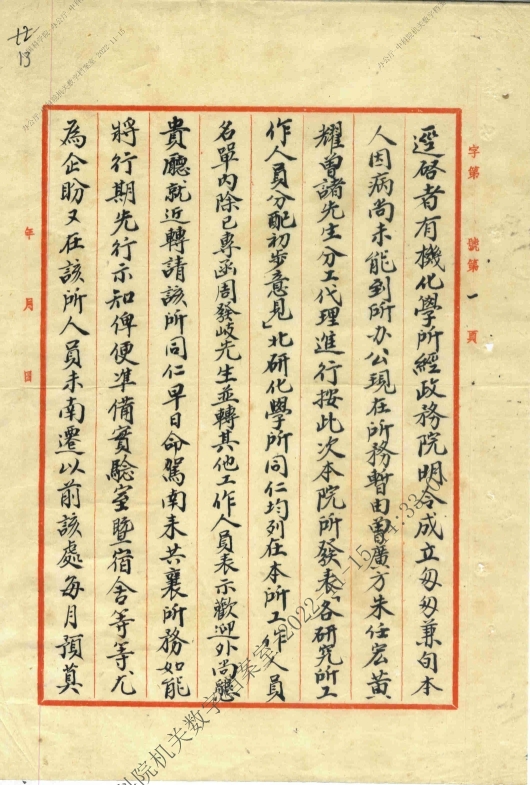 12
13
字第 號第 一 頁
逕啓者有機化學所經政務院明令成立匆匆兼旬本
人因病尚未能到所办公現在所務暫由曾廣方朱任宏黃
耀曾諸先生分工代理進行按此次本院所發表「各研究所工
作人員分配初步意見」北研化學所同仁均列在本所工作人員
名單內除已專函周發岐先生並轉其他工作人員表示歡迎外尚懇
貴廳就近轉請該所同仁早日命駕南來共襄所務如能
將行期先行示知俾便准備實驗室暨宿舍等等尤
為企盼又在該所人員未南遷以前該處每月預算
年 月 日